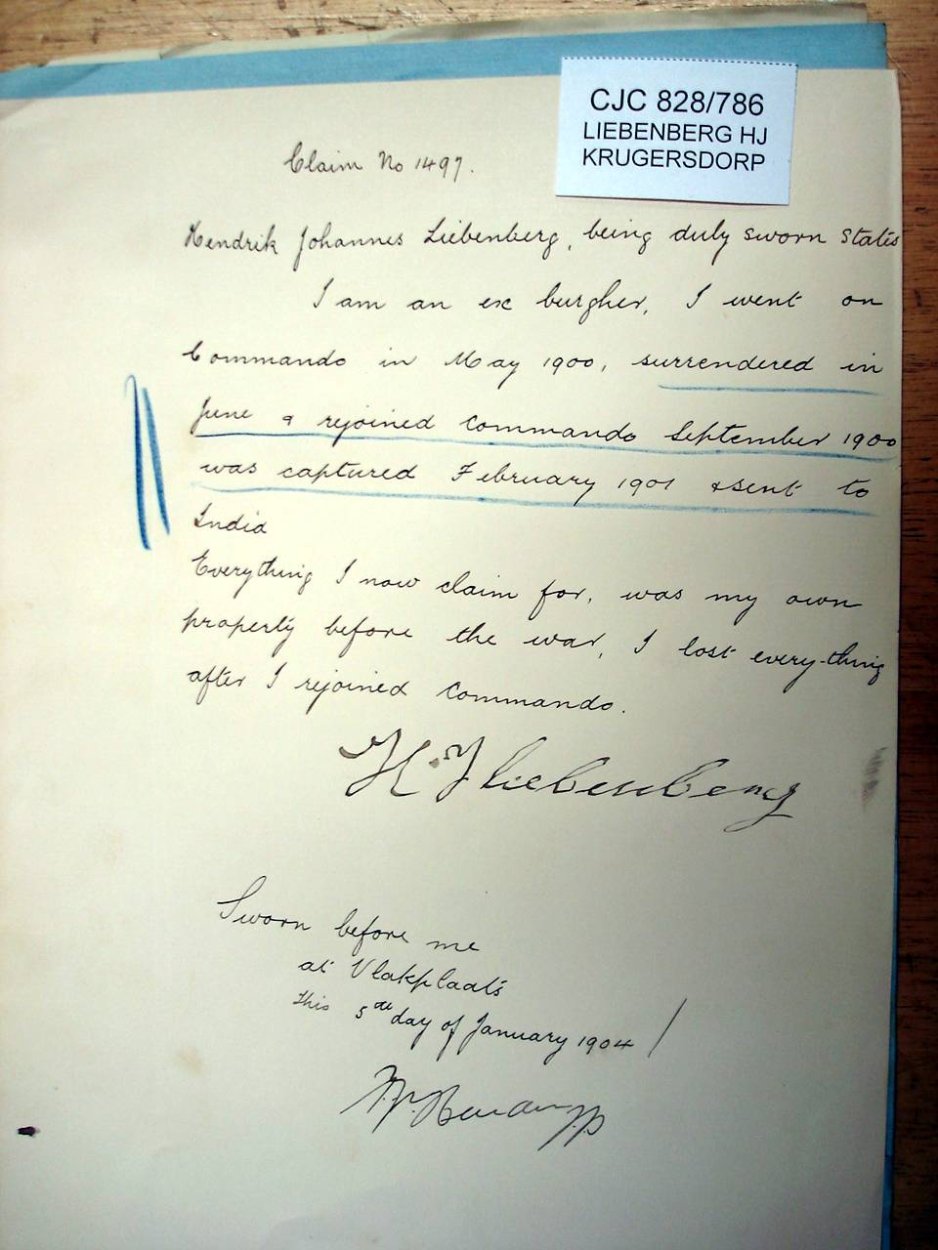 CJC 828/786
LIEBENBERG HJ
KRUGERSDORP
Claim No 1497.
Hendrik Johannes Liebenberg, being duly sworn states
I am an ex burgher, I went on
Commando in May 1900, surrendered in
June & rejoined Commando September 1900
was captured February 1901 & sent to
India
Everything I now claim for, was my own
property before the war, I lost every-thing
after I rejoined Commando.
H. J Liebenberg
Sworn before me
at Vlakplaats
this 5th day of January 1904